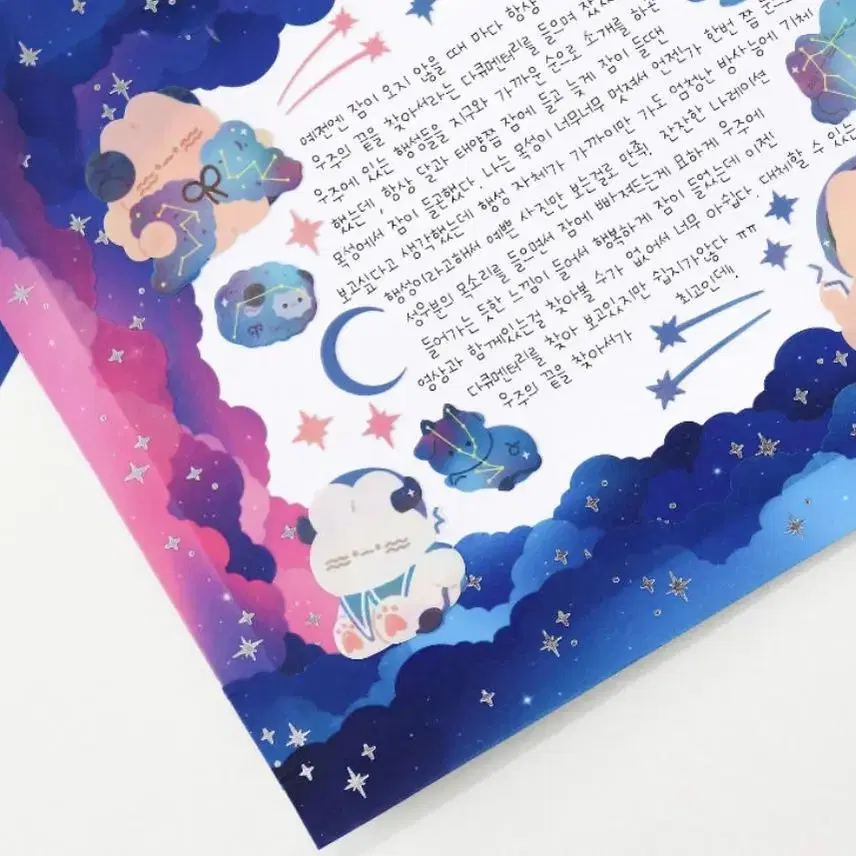 예전엔 잠이 오지 않을 때 마다 항상
우주의 끝을 찾아서라는 다큐멘터리를 들으며 잤었
우주에 있는 행성들을 지구와 가까운 순으로 소개를 하곤
했는데, 항상 달과 태양쯤 잠에 들고 늦게 잠이 들땐
목성에서 잠이 들곤했다. 나는 목성이 너무너무 멋져서 언젠가 한번 쯤
보고싶다고 생각했는데 행성 자체가 가까이만 가도 엄청난 방사능에 기체
행성이라고해서 예쁜 사진만 보는걸로 만족! 잔잔한 나레이션
성우분의 목소리를 들으면서 잠에 빠져드는게 묘하게 우주에
들어가는 듯한 느낌이 들어서 행복하게 잠이 들었는데 이젠
영상과 함께있는걸 찾아볼 수가 없어서 너무 아쉽다. 대체할 수 있는
다큐멘터리를 찾아 보고있지만 쉽지가않다 ㅠㅠ
우주의 끝을 찾아서가 최고인데!